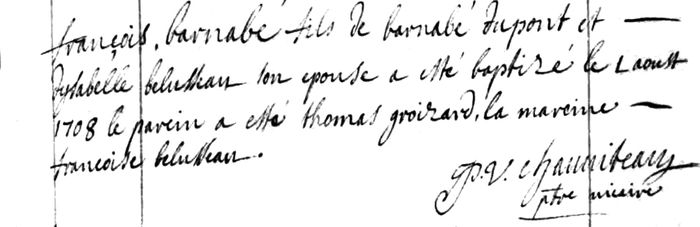 françois, barnabé fils de barnabé dupont et
dysabelle belusseau son epouse a esté baptizé le 1 aoust
1708 le parein a esté thomas groizard, la mareine
françoise belusseau.
ptre vicaire